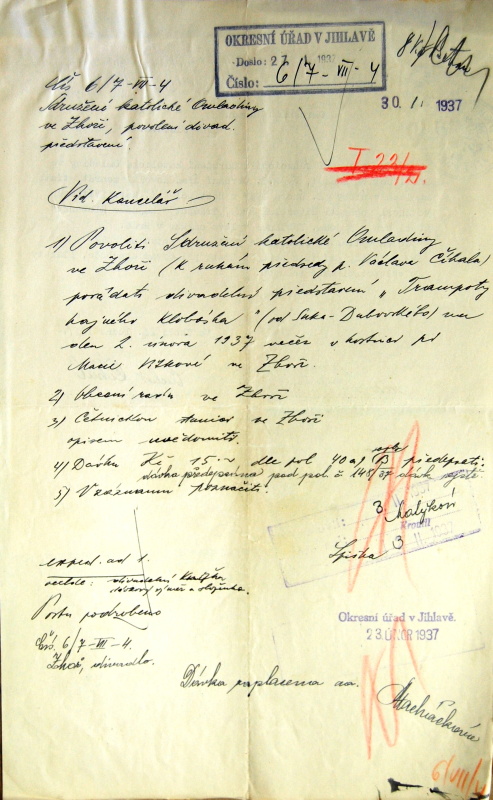 OKRESNÍ ÚŘAD V JIHLAVĚ
Došlo: 27 1937
Číslo: 6/7-VII-4
30. I. 1937
Čís 6/7-VII-4
Sdružení katolické Omladiny
ve Zhoři, povolení divad.
představení.
Vid. Kancelář
1) Povoliti Sdružení katolické Omladiny
ve Zhoři (k rukám předsedy p. Václava Číhala)
pořádati divadelní představení „Trampoty
hajného Klobáska" (od Suka-Dubovského) na
den 2. února 1937 večer v hostinci pí
Marie ve Zhoři.
2) Obecní radu ve Zhoři
3) Četnickou stanici ve Zhoři
opisem uvědomiti.
4) Dávku Kč 15.- dle pol. 40 a) předepsati.
dávka předepsána pod pol. č. 145/37
5) V záznamu poznačiti.
exped. ad 1.
divadelní
Poštu podrobeno
Čís. 6/7-VII-4.
Zhoř, divadlo.
Okresní úřad v Jihlavě.
23. ÚNOR 1937
Dávka zaplacena aa.
6/VII/4